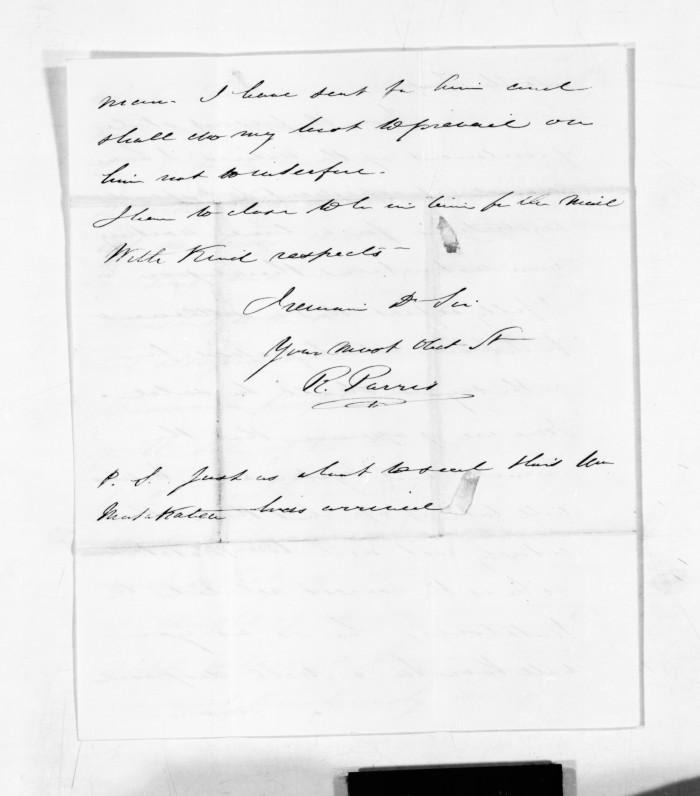 man. I have sent to him and
shall do my best to prevail on
him not to interfere.
I have to close to be in time for the Mail
With Kind respects
I remain Dr Sir
Your most Obt St
R. Parris
P. S. Just as about to seal this Wm
Matakatea has arrived